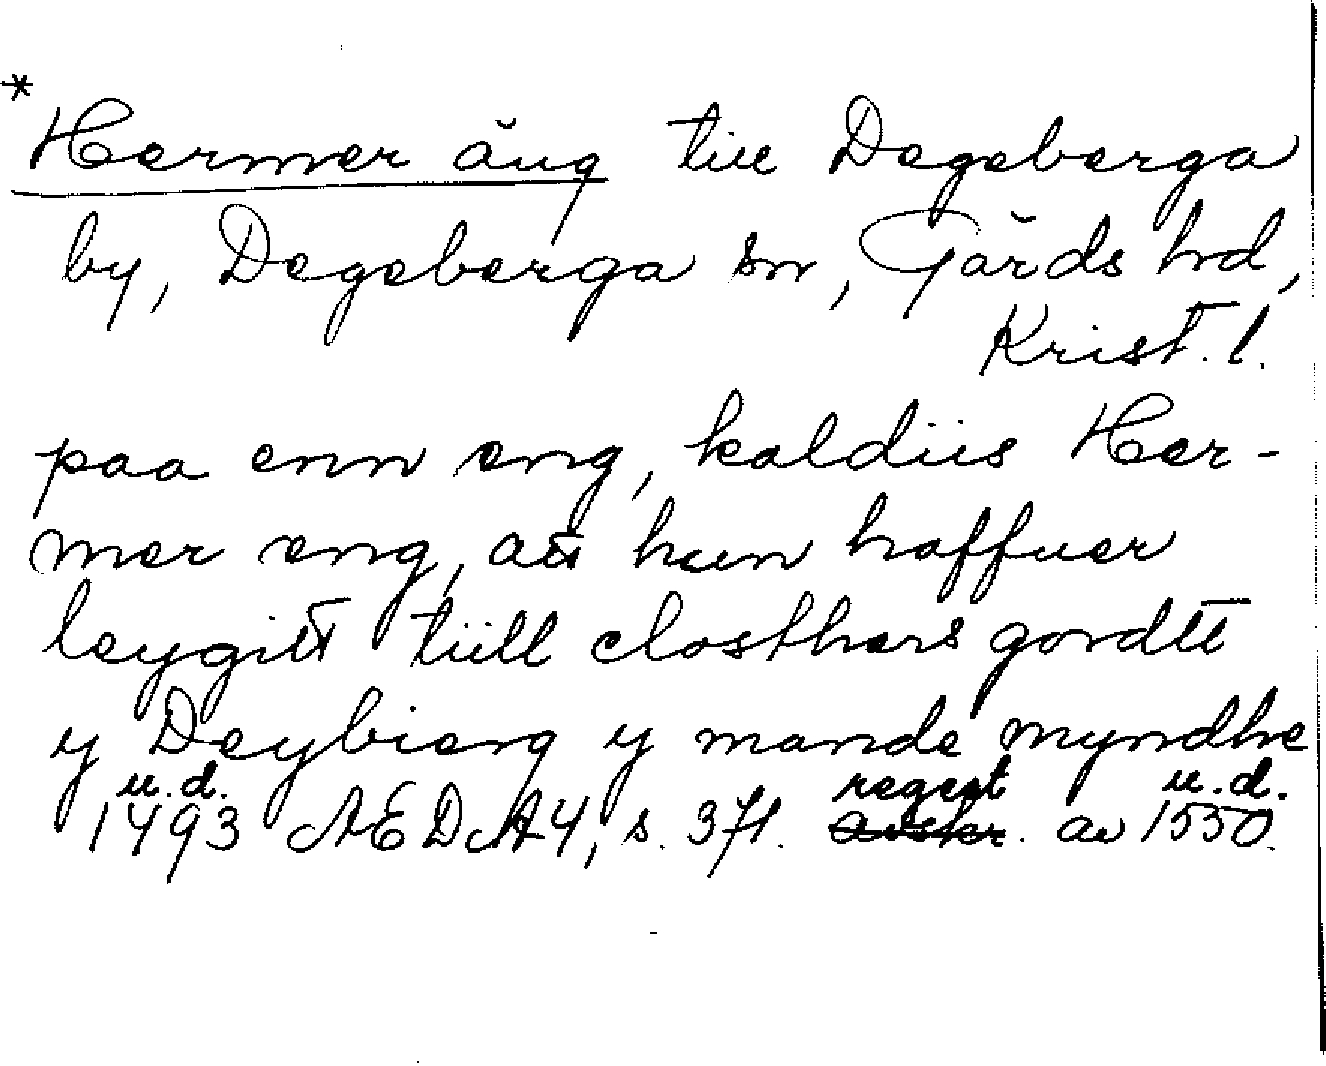 * Hermer äng till Degeberga
by, Degeberga sn, Gärds hd,
Krist. l.
paa enn eng, kaldiis Her-
mer eng, att hun haffuer
leygitt tiill closthers gordtt
y Deybierg y mande myndhe
u.d. regest u.d.
1493 ÆDA 4, s. 371. avskr. av 1550.